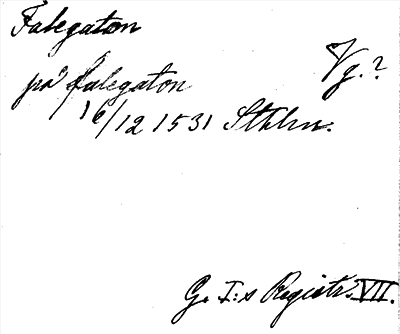 Falegaton
Vg.?
på falegaton
16/12 1531 Sthlm.
G. I:s Registr. VII.